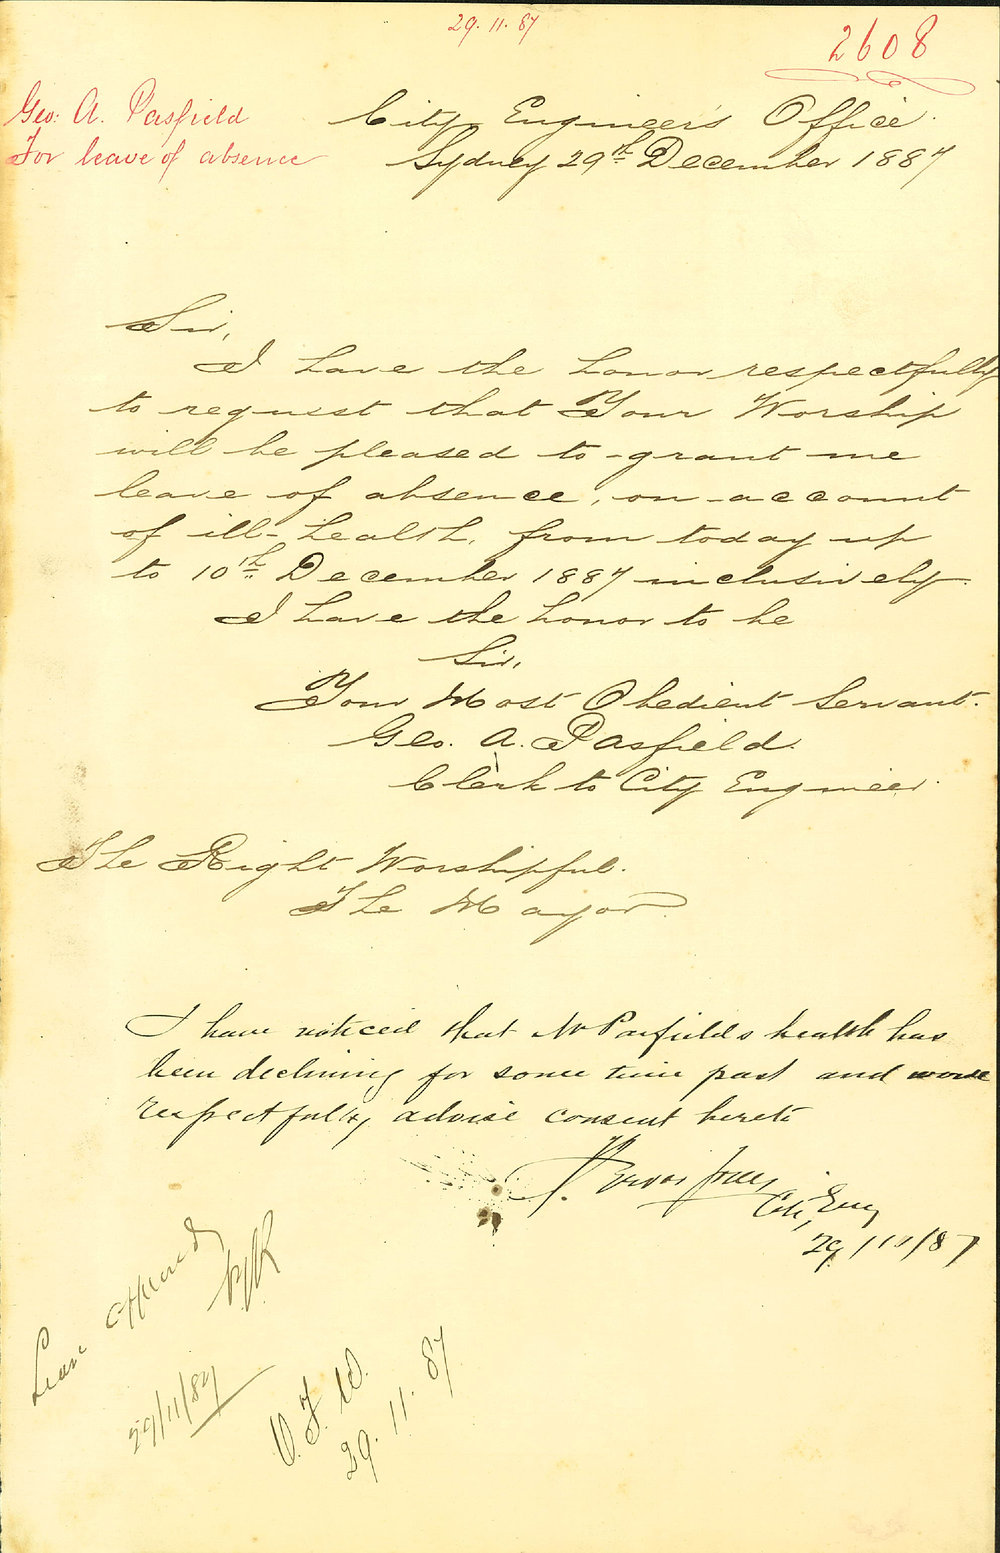 29.11.87
2608
Geo: A. Pasfield
For leave of absence
City Engineer's Office.
Sydney 29th December 1887
Sir,
I have the honor respectfully
to request that Your Worship
will be pleased to grant me
leave of absence, on account
of ill-health, from today up
to 10th December 1887 inclusively.
I have the honor to be
Sir,
Your Most Obedient Servant.
Geo. A. Pasfield.
Clerk to City Engineer.
The Right Worshipful.
The Mayor
I have noticed that Mr Pasfield's health has
been declining for some time past and would
respectfully advise consent hereto
City Eng
29/11/87
Leave approved
29/11/87
29.11.87